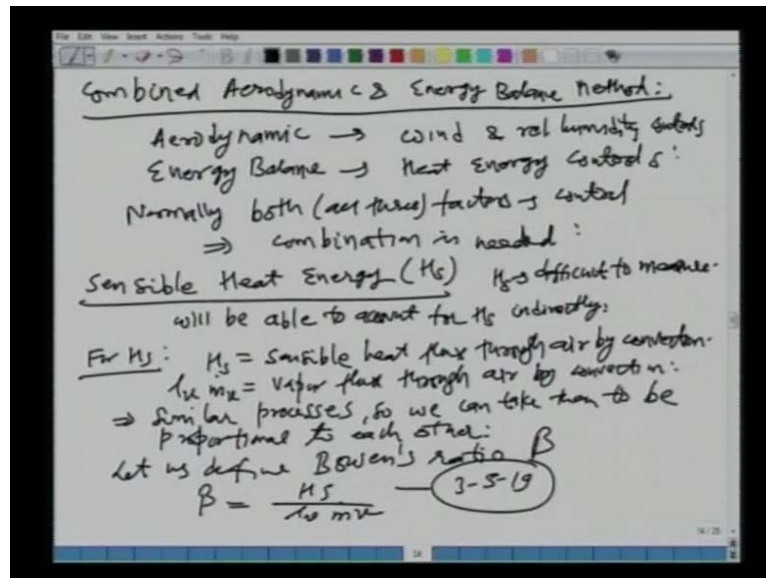 File Edit View Insert Actions Tools Help
Combined Aerodynamic & Energy Balance Method:
Aerodynamic → wind & rel humidity controls
Energy Balance → Heat Energy controls:
Normally both (all three) factors → control
⇒ combination is needed:
Sensible Heat Energy (Hs) Hs → difficult to measure.
will be able to account for Hs indirectly:
For Hs: Hs = Sensible heat flux through air by convection.
lv mv = vapor flux through air by convection:
⇒ Similar processes, so we can take them to be
proportional to each other:
Let us define Bowen's ratio β
β = Hs / lv mv — 3-5-19